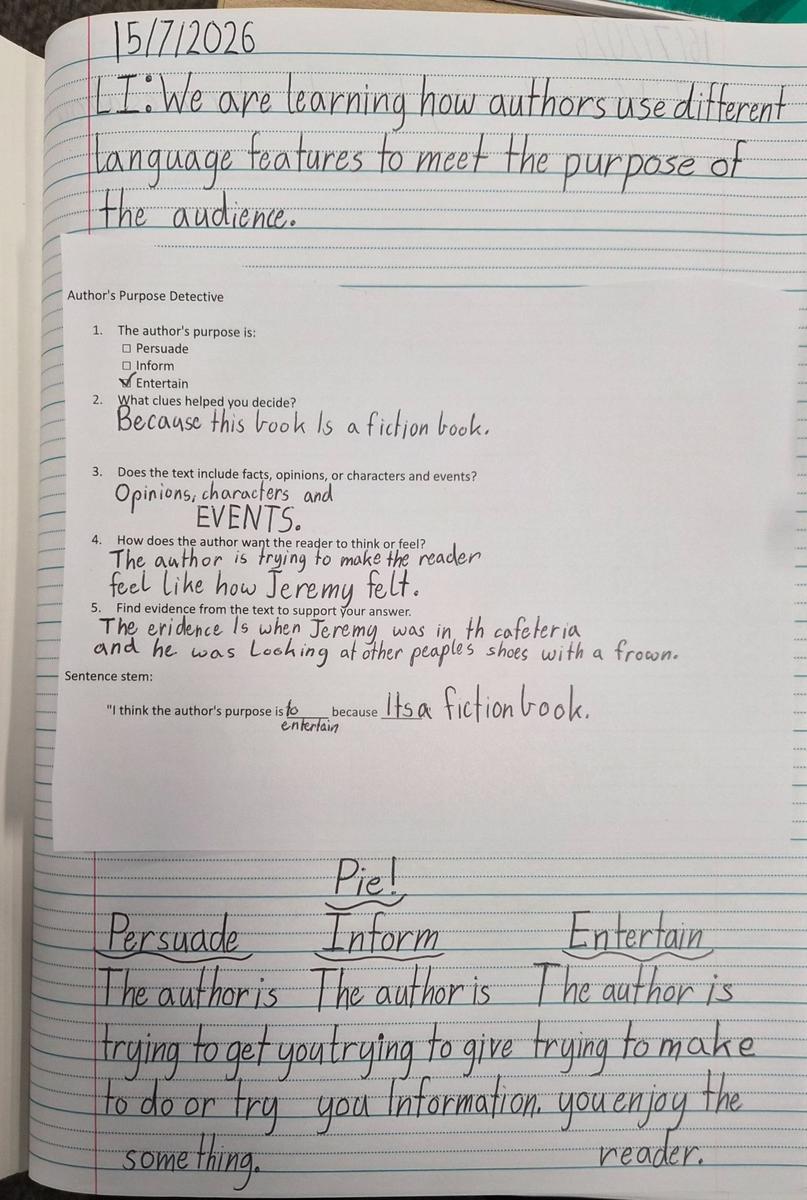 15/7/2026
LI: We are learning how authors use different
language features to meet the purpose of
the audience.
Author's Purpose Detective
1. The author's purpose is:
☐ Persuade
☐ Inform
☑ Entertain
2. What clues helped you decide?
Because this book Is a fiction book.
3. Does the text include facts, opinions, or characters and events?
Opinions, characters and
EVENTS.
4. How does the author want the reader to think or feel?
The author is trying to make the reader
feel like how Jeremy felt.
5. Find evidence from the text to support your answer.
The evidence Is when Jeremy was in th cafeteria
and he was Looking at other peaple's shoes with a frown.
Sentence stem:
"I think the author's purpose is to entertain because Its a fiction book.
Pie!
Persuade Inform Entertain
The author is The author is The author is
trying to get you trying to give trying to make
to do or try you Information. you enjoy the
something. reader.